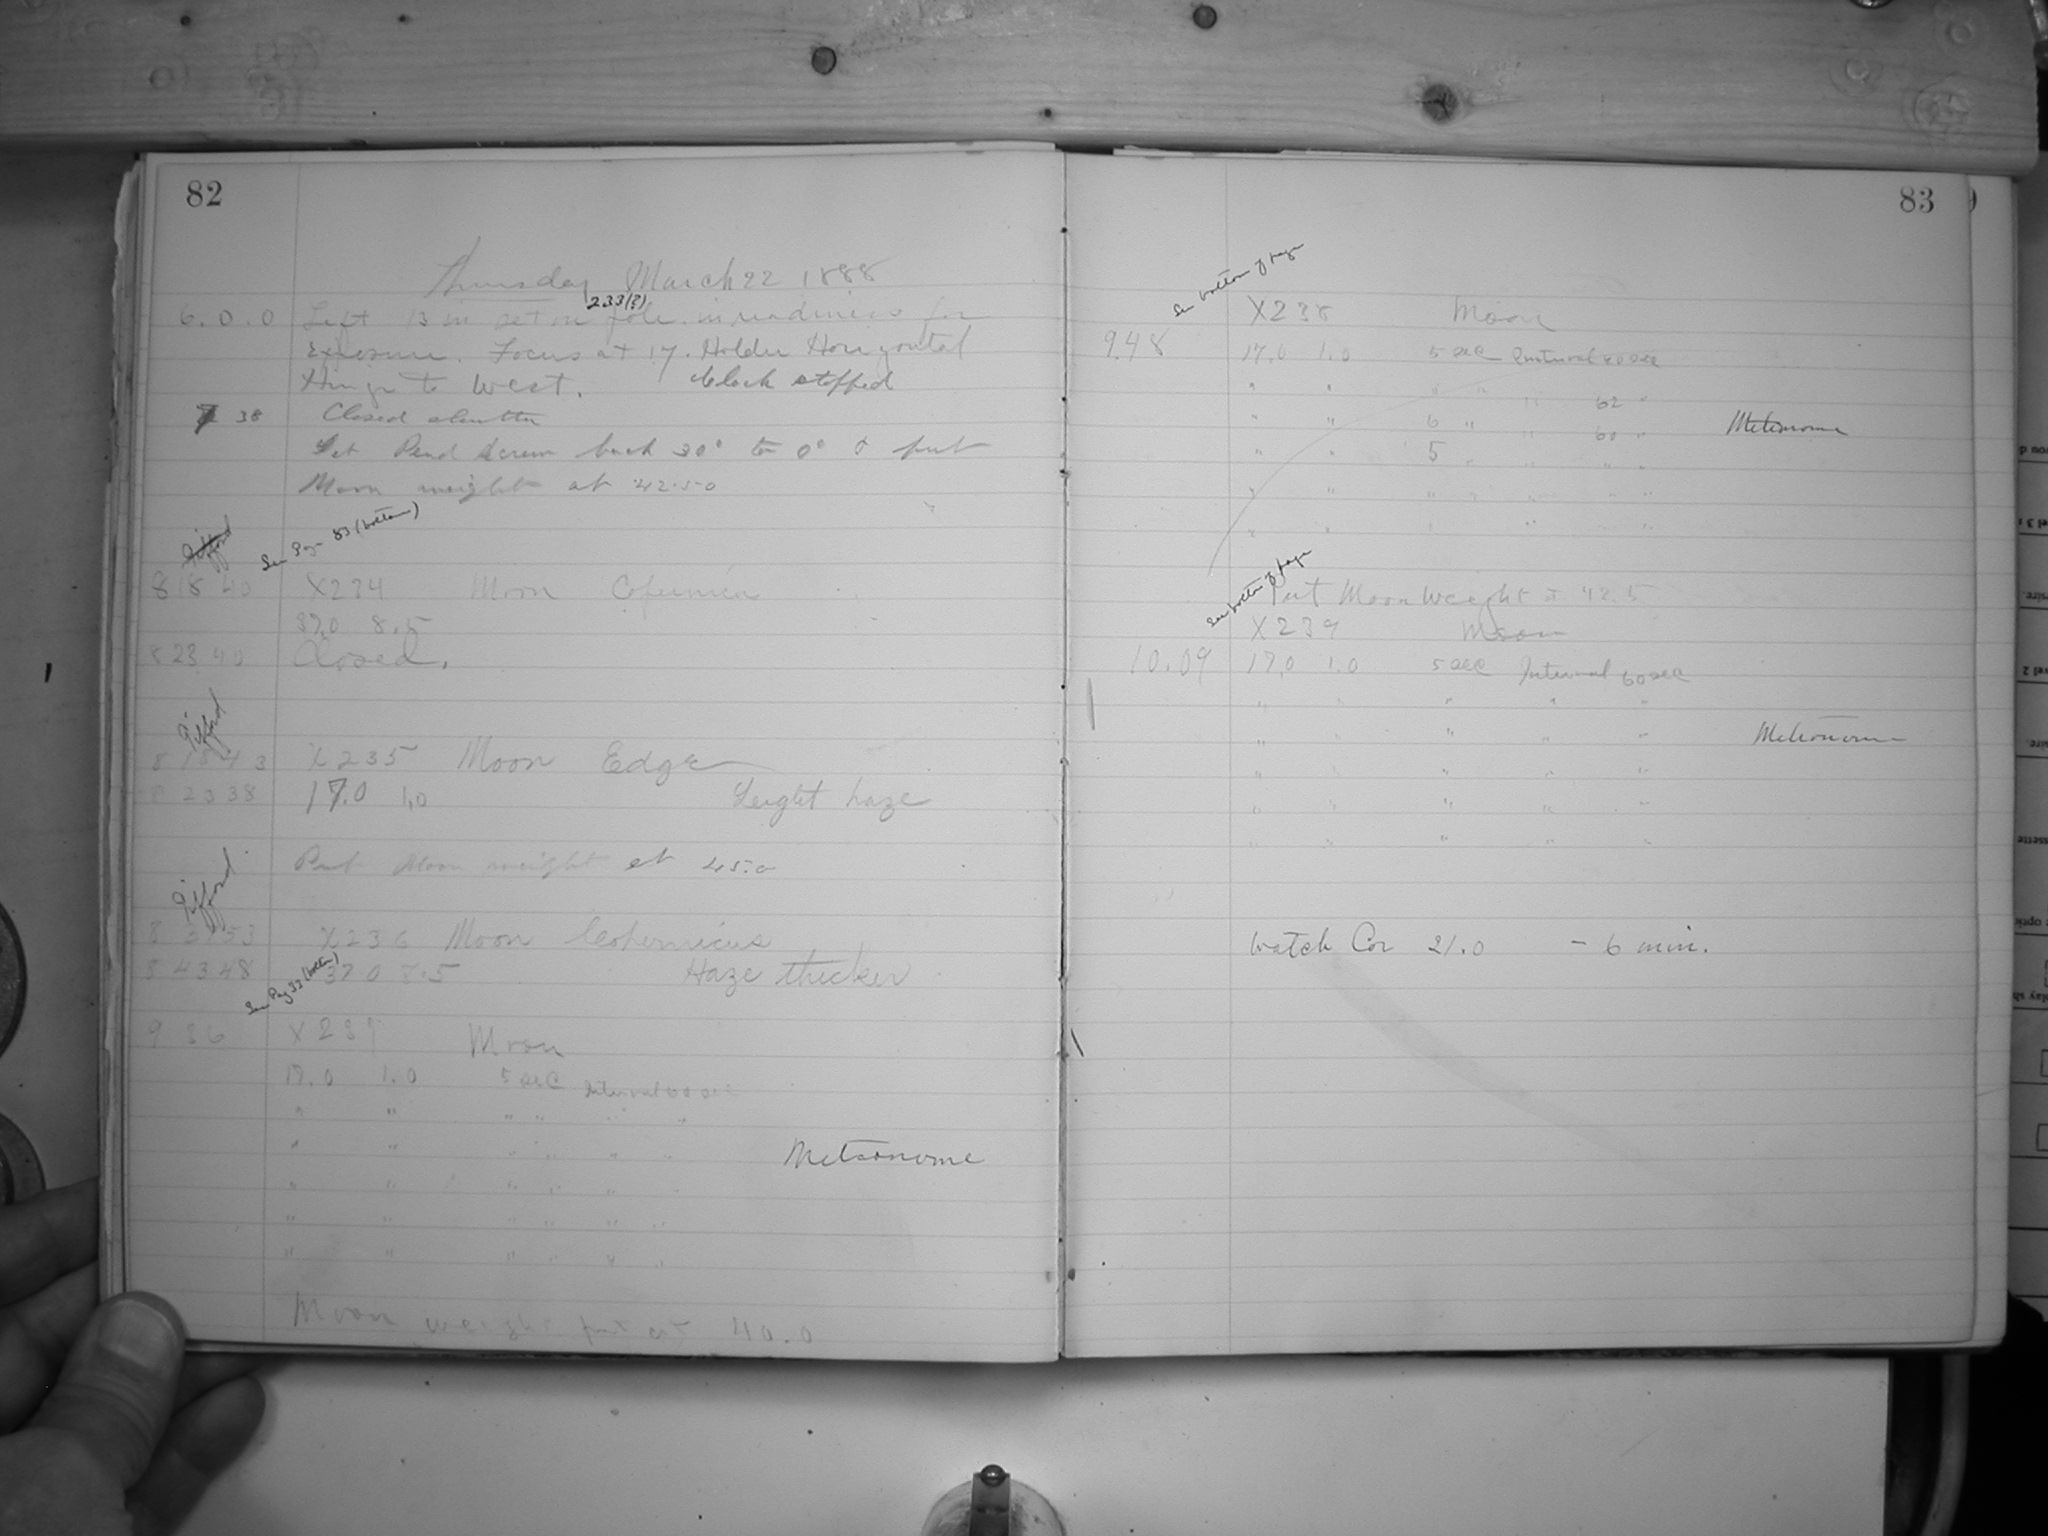 82
Thursday March 22 1888
233(?)
6. 0. 0 Left 13 in set on Pole in readiness for
exposure. Focus at 17. Holder Horizontal
Hinge to West. Clock stopped
7 38 Closed shutter
Set Pend Screw back 30° to 0° & put
Moon weight at 42.50
Gifford
See Page 83 (bottom)
8 18 40 X234 Moon Copernicus
37.0 8.5
8 23 40 Closed.
Gifford
X235 Moon Edge
8 23 38 17.0 1.0 Light haze
Put Moon weight at 45.0
Gifford
X236 Moon Copernicus
8 43 48 37.0 8.5 Haze thicker
See Page 83 (bottom)
9 36 X237 Moon
17.0 1.0 5 sec Interval 60 sec
" " " " " "
" " " " " "
Metronome
" " " " " "
" " " " " "
" " " " " "
Moon weight put at 40.0
83
See bottom of page
X238 Moon
9.48 17.0 1.0 5 sec Interval 60 sec
" " " " " 62 "
" " 6 " " 60 "
Metronome
" " 5 " " " "
" " " " " " "
" " " " "
Put Moon Weight at 42.5
See bottom of page
X239 Moon
10.09 17.0 1.0 5 sec Interval 60 sec
" " " " "
" " " " "
Metronome
" " " " "
" " " " "
" " " " "
Watch Cor 21.0 - 6 min.